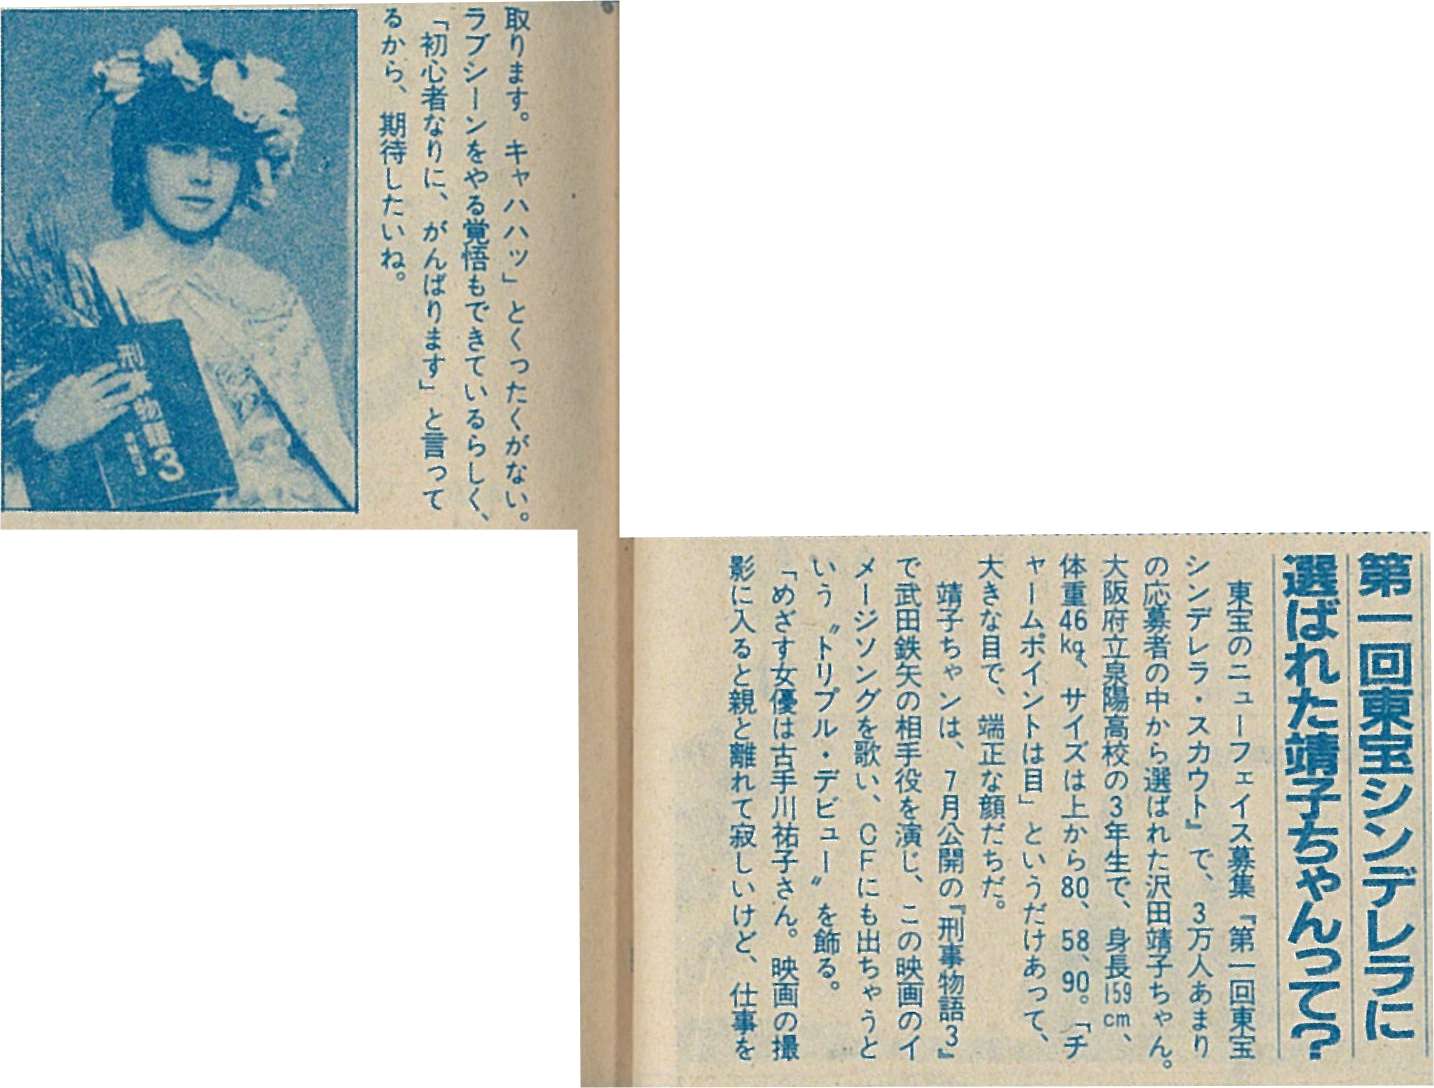 第一回東宝シンデレラに
選ばれた靖子ちゃんって?
東宝のニューフェイス募集『第一回東宝
シンデレラ・スカウト』で、3万人あまり
の応募者の中から選ばれた沢田靖子ちゃん。
大阪府立泉陽高校の3年生で、身長159cm、
体重46kg、サイズは上から80、58、90。「チ
ャームポイントは目」というだけあって、
大きな目で、端正な顔だちだ。
靖子ちゃンは、7月公開の『刑事物語3』
で武田鉄矢の相手役を演じ、この映画のイ
メージソングを歌い、CFにも出ちゃうと
いう〝トリプル・デビュー〟を飾る。
「めざす女優は古手川祐子さん。映画の撮
影に入ると親と離れて寂しいけど、仕事を
取ります。キャハハッ」とくったくがない。
ラブシーンをやる覚悟もできているらしく、
「初心者なりに、がんばります」と言って
るから、期待したいね。
刑事物語3